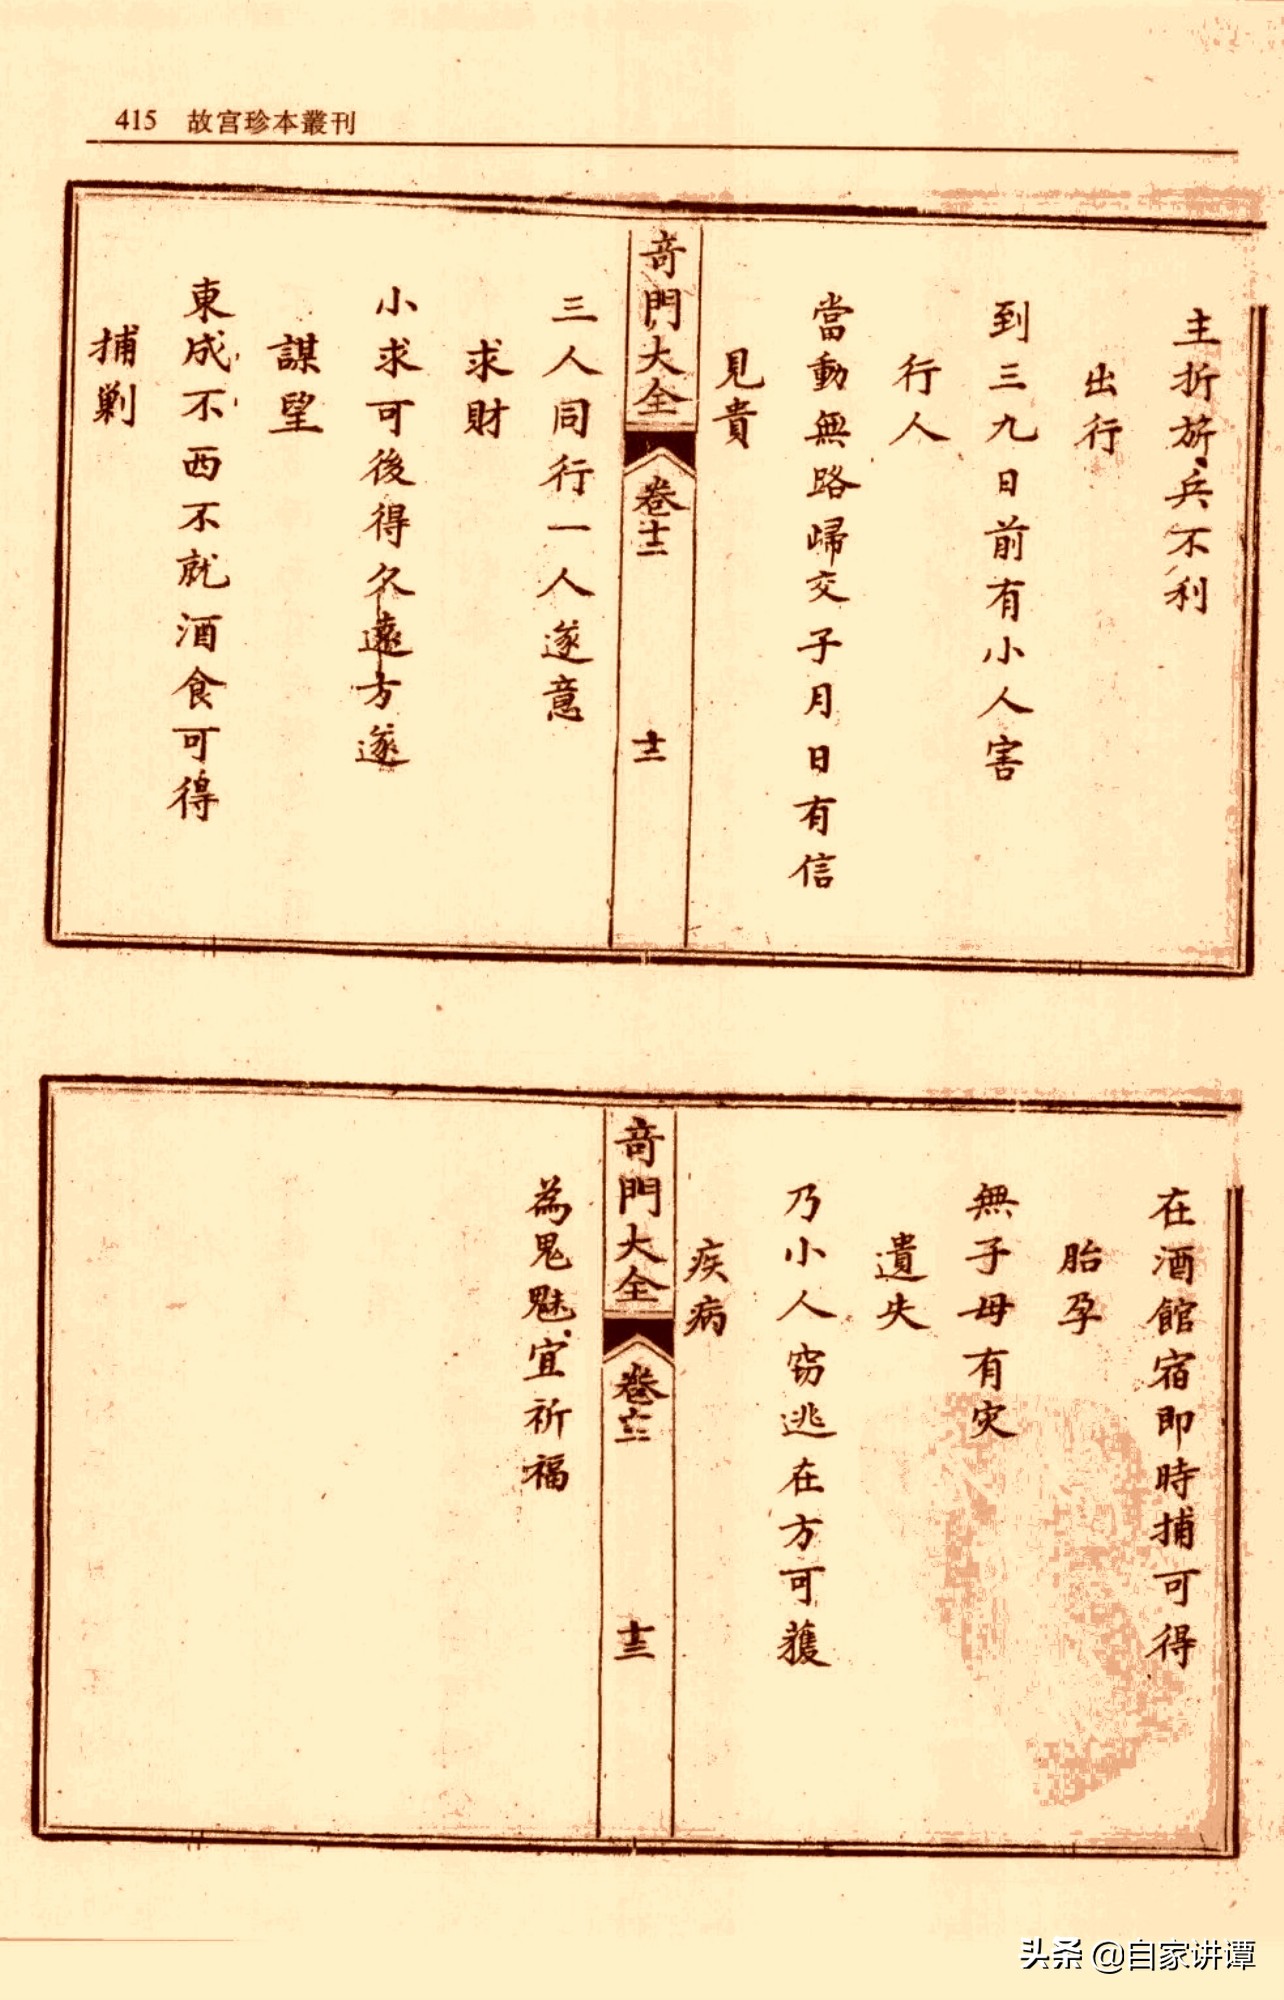 415 故宮珍本叢刊
主折旂兵不利
出行
到三九日前有小人害
行人
當動無路歸交子月日有信
見貴
竒門大全 卷十二 十二
三人同行一人遂意
求財
小求可後得久遠方遂
謀望
東成不西不就酒食可得
捕剿
在酒館宿即時捕可得
胎孕
無子母有灾
遺失
乃小人窃逃在方可獲
疾病
竒門大全 卷十二 十三
為鬼魅宜祈福
头条 @自家讲谭